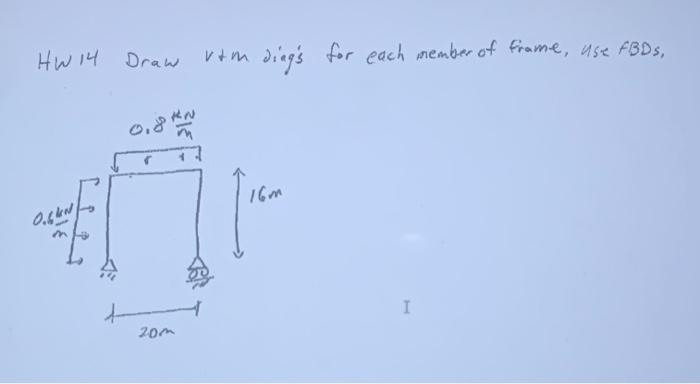 HW 14 Draw V+M diag's for each member of frame, use FBDs,
0.8 kN/m
16m
0.6 kN/m
20m